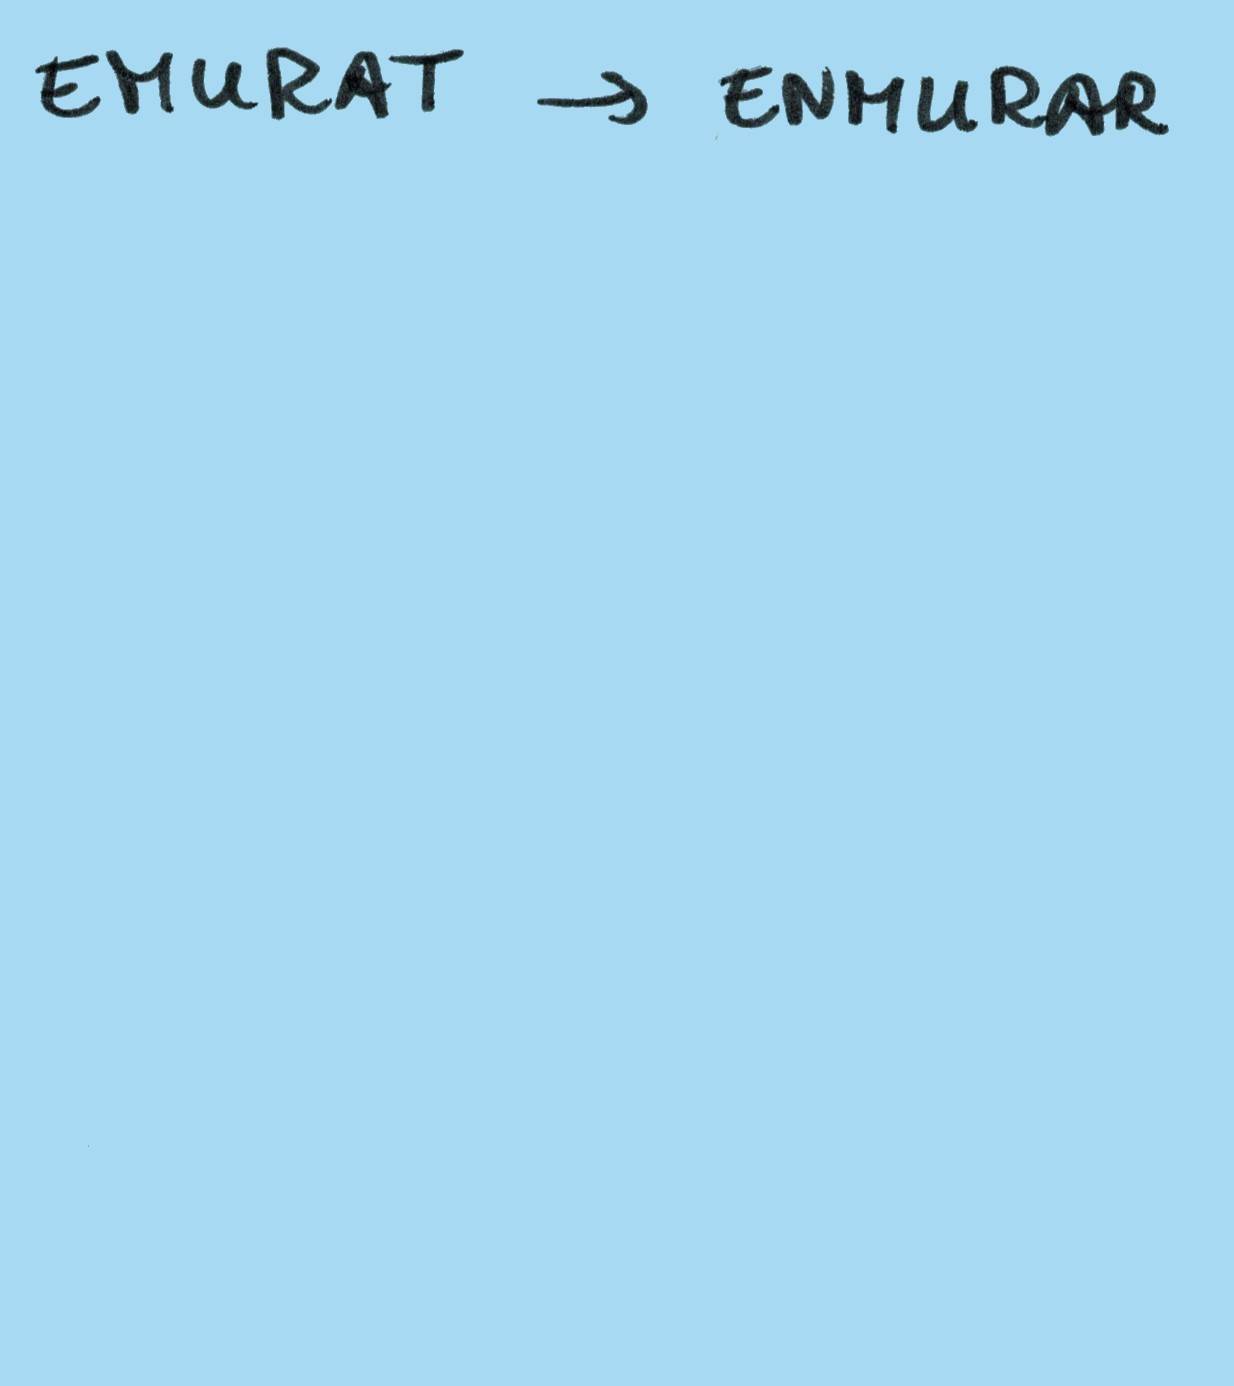 EMURAT → ENMURAR